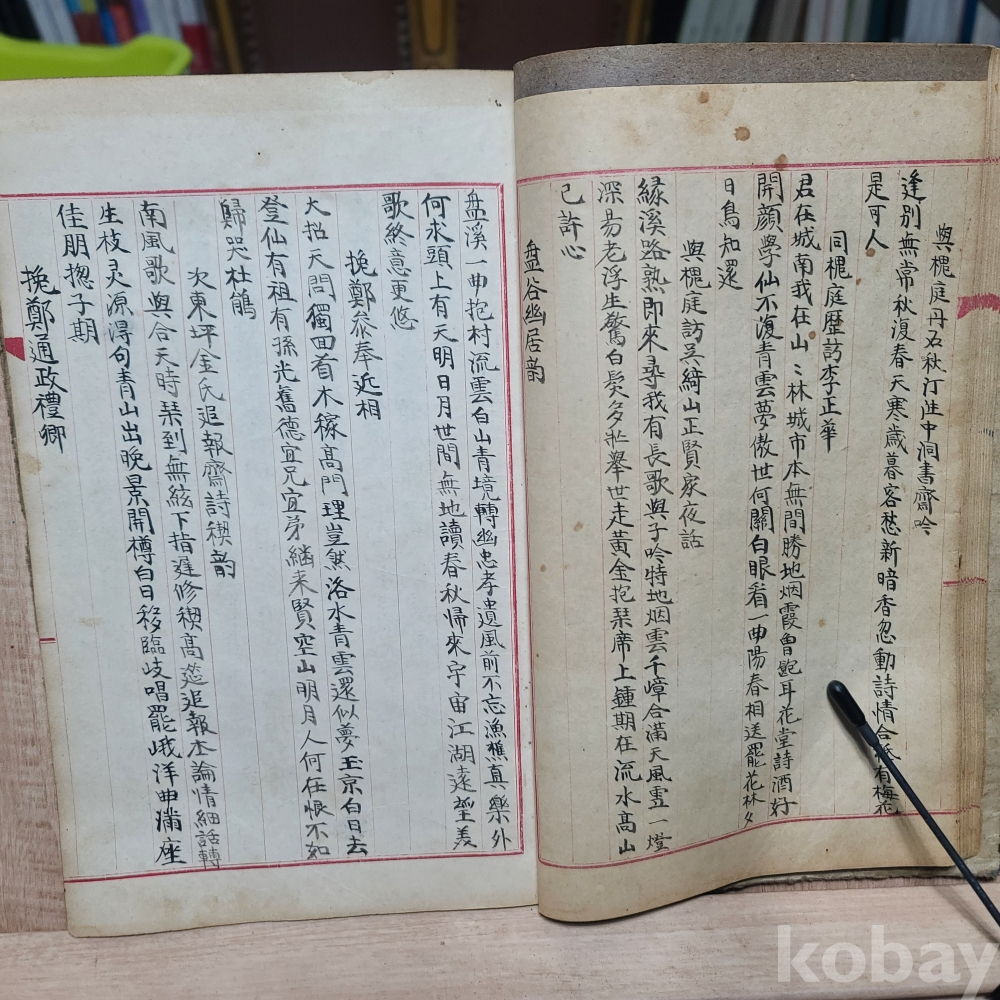 與槐庭丹五秋汀壯中洞書齋吟
逢別無常秋復春天寒歲暮客愁新暗香忽動詩情合秪有梅花
是可人
同槐庭歷訪李正華
君在城南我在山〻林城市本無間勝地烟霞曾
耳花堂詩酒好
開顔學仙不復青雲夢傲世何關白眼看一曲陽春相送罷花林夕
日鳥知還
與槐庭訪吳綺山正賢家夜話
緣溪路熟即來尋我有長歌與子吟特地烟雲千嶂合滿天風雪一燈
深易老浮生驚白髮多忙舉世走黃金抱琹席上鍾期在流水高山
已許心
盘谷幽居韵
盘溪一曲抱村流雲白山青境轉幽忠孝遺風前不忘漁樵真樂外
何求頭上有天明日月世間無地讀春秋帰來宇宙江湖遠
羙
歌終意更悠
挽鄭叅奉近相
大招天問獨回首木稼高門理豈然洛水青雲還似夢玉京白日去
登仙有祖有孫光舊德宜兄宜弟繼来賢空山明月人何在恨不如
歸哭杜鵑
次東坪金氏追報齋詩稧韵
南風歌與合天時琹到無絃下指遲修稧高筵追報本論情細話轉
生枝灵源得句青山出晚景開樽白日移臨歧唱罷峨洋曲滿座
佳朋揔子期
挽鄭通政禮卿
kobay